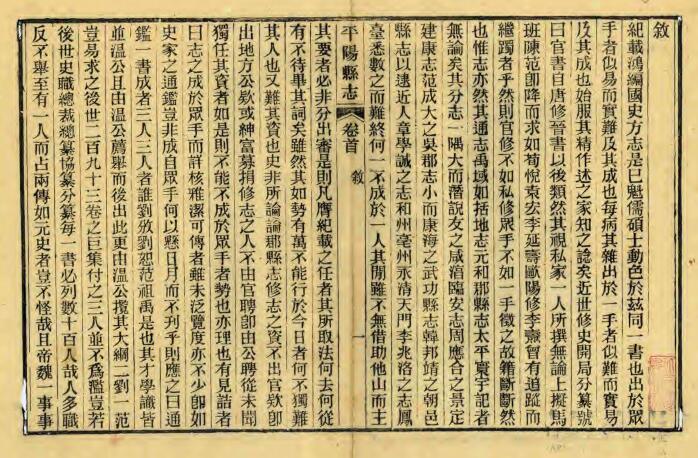 敘
紀載鴻編國史方志是已魁儒碩士動色於茲同一書也出於眾
手者似易而實難及其成也每病其雜出於一手者似難而實易
及其成也始服其精作述之家知之諗矣近世修史開局分纂號
曰官書自唐修晉書以後類然其視私家一人所撰無論上擬馬
班陳范卽降而求如荀悅袁宏李延壽歐陽修李燾曾有追蹤而
繼躅者乎然則官修不如私修眾手不如一手徵之故籍斷斷然
也惟志亦然其通志禹域如括地志元和郡縣志太平寰宇記者
無論矣其分志一隅大而潛說友之咸淳臨安志周應合之景定
建康志范成大之吳郡志小而康海之武功縣志韓邦靖之朝邑
縣志以逮近人章學誠之志和州亳州永清天門李兆洛之志鳳
臺悉數之而難終何一不成於一人其閒雖不無借助他山而主
平陽縣志
卷首
敘
一
其要者必非分出審是則凡膺紀載之任者其所取法何去何從
有不待畢其詞矣雖然其如勢有萬不能行於今日者何不獨難
其人也又難其資也史非所論論郡縣修志之資不出官欵卽
出地方公欵或紳富募捐修志之人不由官聘卽由公聘從未聞
獨任其資者如是則不能不成於眾手者勢也亦理也有見詰者
曰志之成於眾手而許核雅潔可傳者雖未泛覽度亦不少卽如
史家之通鑑豈非成自眾手何以懸日月而不刋乎則應之曰通
鑑一書成者三人三人者誰劉攽劉恕范祖禹是也其才學識皆
並溫公且由溫公薦舉而後出此更由溫公攬其大綱二劉一范
豈易求之後世二百九十三卷之巨集付之三人並不爲濫豈若
後世史職總裁總纂協纂分纂每一書必列數十百人哉人多職
反不舉至有一人而占兩傳如元史者豈不怪哉且帝魏一事事